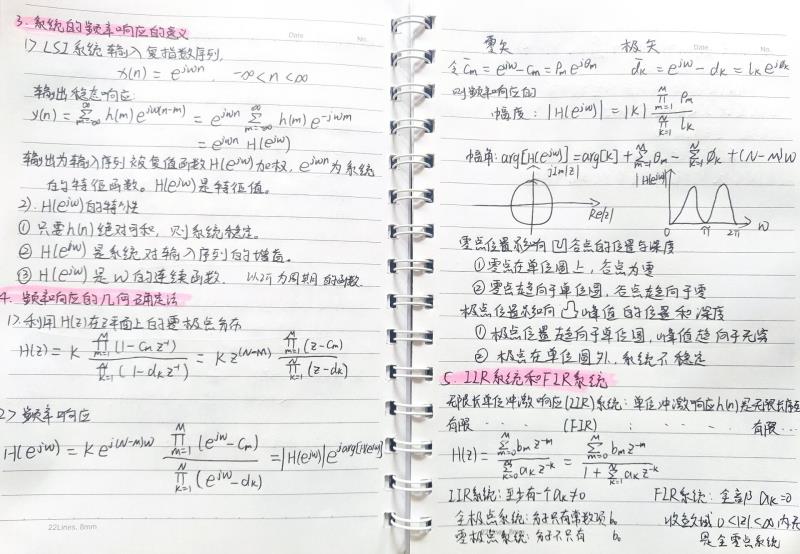 3. 系统的频率响应的意义
1) LSI系统输入复指数序列,
x(n) = e^{jωn}, -∞<n<∞
输出稳态响应:
y(n) = \sum_{m=-∞}^{∞} h(m) e^{jω(n-m)} = e^{jωn} \sum_{m=-∞}^{∞} h(m) e^{-jωm}
= e^{jωn} H(e^{jω})
输出为输入序列被复值函数H(e^{jω})加权, e^{jωn}为系统
的特征函数。H(e^{jω})是特征值。
2). H(e^{jω})的特性
① 只要h(n)绝对可和, 则系统稳定。
② H(e^{jω})是系统对输入序列的增益。
③ H(e^{jω})是ω的连续函数. 以2π为周期的函数.
4. 频率响应的几何确定法
1). 利用H(z)在z平面上的零极点分布
H(z) = K \frac{\prod_{m=1}^{M}(1-C_m z^{-1})}{\prod_{k=1}^{N}(1-d_k z^{-1})} = K z^{(N-M)} \frac{\prod_{m=1}^{M}(z-C_m)}{\prod_{k=1}^{N}(z-d_k)}
2) 频率响应
H(e^{jω}) = K e^{j(N-M)ω} \frac{\prod_{m=1}^{M}(e^{jω}-C_m)}{\prod_{k=1}^{N}(e^{jω}-d_k)} = |H(e^{jω})| e^{jarg[H(e^{jω})]}
22Lines, 8mm
Date No.
零矢 极矢
令 C_m = e^{jω} - C_m = ρ_m e^{jθ_m} d_k = e^{jω} - d_k = l_k e^{jϕ_k}
对频率响应的
幅度: |H(e^{jω})| = |K| \frac{\prod_{m=1}^{M} ρ_m}{\prod_{k=1}^{N} l_k}
幅角: arg[H(e^{jω})] = arg[K] + \sum_{m=1}^{M} θ_m - \sum_{k=1}^{N} ϕ_k + (N-M)ω
jIm[z] |H(e^{jω})|
Re[z] 0 π 2π ω
零点位置影响凹谷点的位置与深度
① 零点在单位圆上, 谷点为零
② 零点趋向于单位圆, 谷点趋向于零
极点位置影响凸峰值的位置和深度
① 极点位置趋向于单位圆, 峰值趋向于无穷
② 极点在单位圆外, 系统不稳定
5. IIR系统和FIR系统
无限长单位冲激响应(IIR)系统: 单位冲激响应h(n)是无限长序列
有限 · · · · (FIR) : · · · · 有限 · · ·
H(z) = \frac{\sum_{m=0}^{M} b_m z^{-m}}{\sum_{k=0}^{N} a_k z^{-k}} = \frac{\sum_{m=0}^{M} b_m z^{-m}}{1+\sum_{k=1}^{N} a_k z^{-k}}
IIR系统: 至少有一个a_k≠0 FIR系统: 全部a_k=0
全极点系统: 分子只有常数项b_0 收敛域0<|z|<∞内无
零极点系统: 分子不只有 b_0 是全零点系统